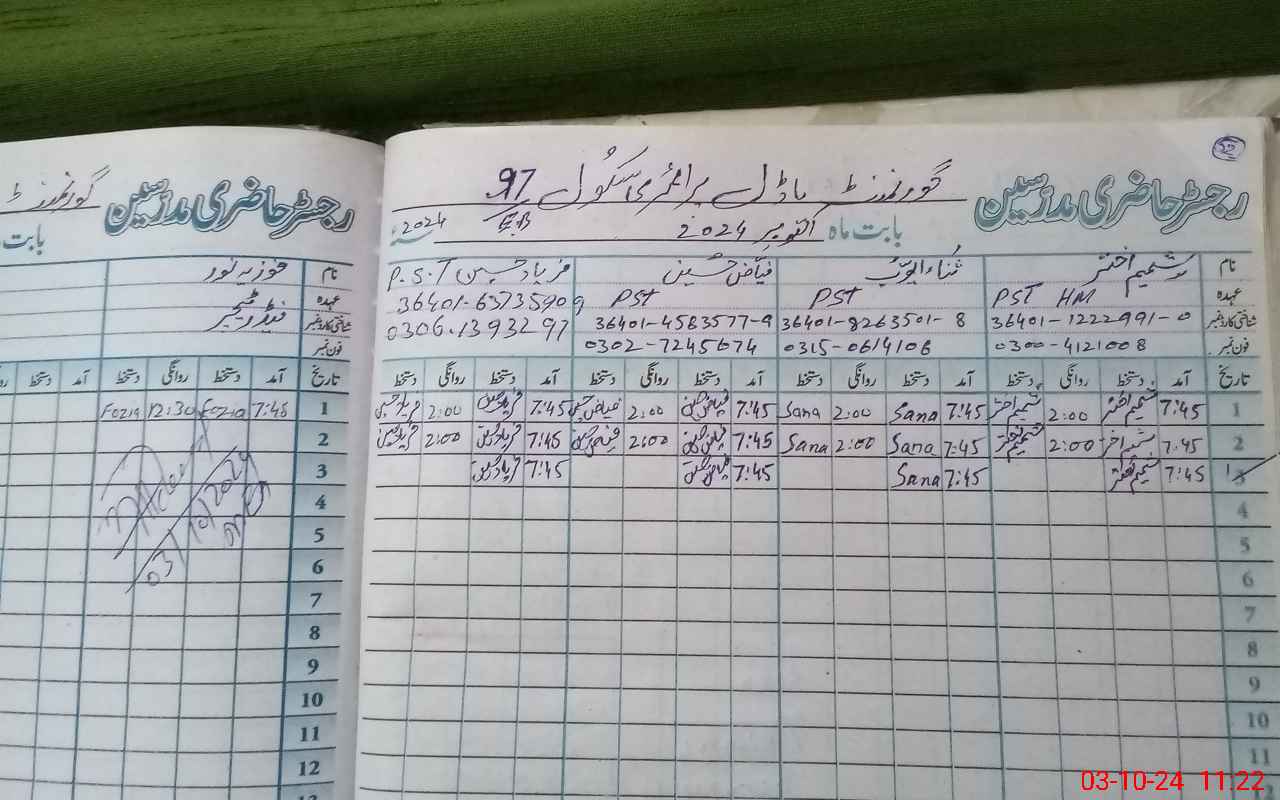 52
رجسٹر حاضری مدرسین گورنمنٹ ماڈل پرائمری سکول 97/EB
بابت ماہ اکتوبر 2024 سنہ 2024
نام شمیم اختر ثناء ایوب فیاض حسین فریاد حسین P.S.T
عہدہ PST HM PST PST 36401-6373590 9
شناختی کارڈ نمبر 36401-1222991-0 36401-8263501-8 36401-4583577-9 0306-1393297
فون نمبر 0300-4121008 0315-0614106 0302-7245674
تاریخ آمد دستخط روانگی دستخط آمد دستخط روانگی دستخط آمد دستخط روانگی دستخط آمد دستخط روانگی دستخط
1 7:45 شمیم اختر 2:00 شمیم اختر 7:45 Sana 2:00 Sana 7:45 فیاض حسین 2:00 فیاض حسین 7:45 فریاد حسین 2:00 فریاد حسین
2 7:45 شمیم اختر 2:00 شمیم اختر 7:45 Sana 2:00 Sana 7:45 فیاض حسین 2:00 فیاض حسین 7:45 فریاد حسین 2:00 فریاد حسین
3 7:45 شمیم اختر 7:45 Sana 7:45 فیاض حسین 7:45 فریاد حسین
4
5
6
7
8
9
10
11
12
رجسٹر حاضری مدرسین گورنمنٹ
بابت
نام فوزیہ نور
عہدہ
شناختی کارڈ نمبر
فون نمبر
تاریخ آمد دستخط روانگی دستخط آمد دستخط
1 7:45 Fozia 12:30 Fozia
2
3
4
5
6
7
8
9
10
11
12
03/10/2024
03-10-24 11.22